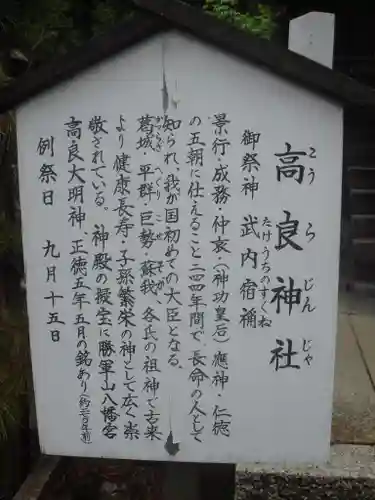 高良神社
こうらじんじゃ
御祭神 武内宿禰
たけうちのすくね
景行・成務・仲哀・(神功皇后)應神・仁徳
の五朝に仕えること二四四年間で、長命の人として
知られ、我が国初めての大臣となる。
葛城・平群・巨勢・蘇我、各氏の祖神で古来
かつらぎ へぐり こせ そが
より健康長寿・子孫繁栄の神として広く崇
敬されている。神殿の擬宝に勝軍山八幡宮
高良大明神、正徳五年五月の銘あり(約二百年前)
例祭日 九月十五日